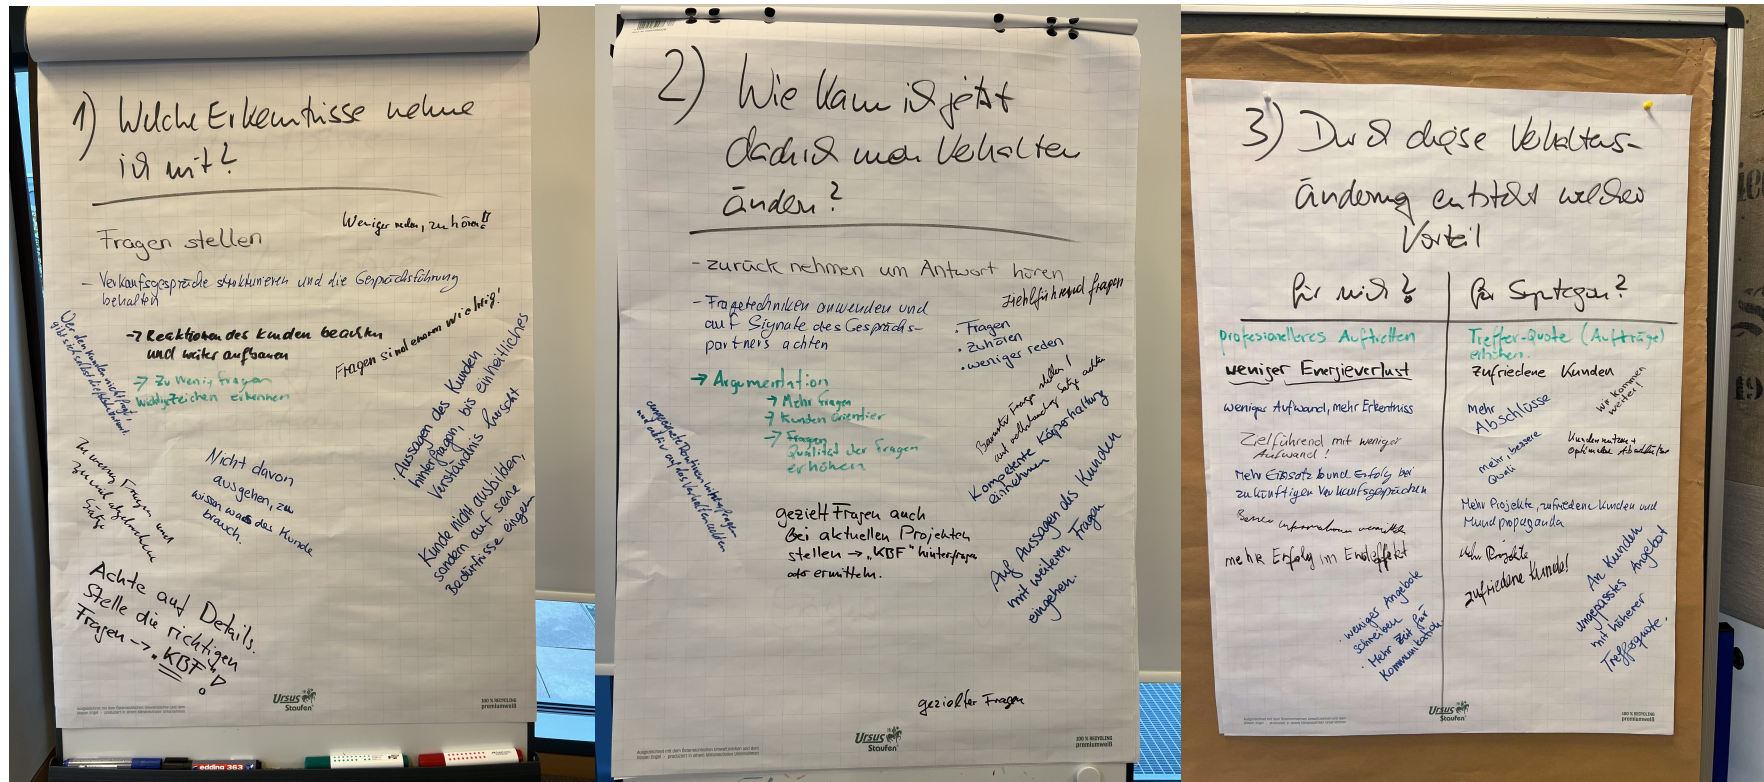 1) Welche Erkenntnisse nehme
ich mit?
Weniger reden, zuhören!!
Fragen stellen
- Verkaufsgespräche strukturieren und die Gesprächsführung
behalten
-> Reaktionen des Kunden beachten
und weiter aufbauen
Fragen sind enorm wichtig!
-> Zu wenig fragen
wichtige Zeichen erkennen
Wer den Kunden nicht fragt,
gibt sich selbst die Antwort.
· Aussagen des Kunden
hinterfragen, bis einheitliches
Verständnis herrscht
Zu wenig Fragen und
zu viel abgebrochene
Sätze
Nicht davon
ausgehen, zu
wissen was des Kunde
brauch.
Kunde nicht ausbilden,
sondern auf seine
Bedürfnisse eingehen
Achte auf Details.
Stelle die richtigen
Fragen -> "KBF" !
Ursus
Staufen
100 % RECYCLING
premiumweiß
2) Wie kann ich jetzt
dadurch mein Verhalten
ändern?
- zurück nehmen um Antwort hören
ziehlführend fragen
- Fragetechniken anwenden und
auf Signale des Gesprächs-
partners achten
· Fragen
· Zuhören
· weniger reden
-> Argumentation
-> Mehr fragen
-> Kunden orientier
-> Fragen
Qualität der Fragen
erhöhen
Bewusster Fragen stellen /
auf vollständige Sätze achten
Kompetente Körperhaltung
einnehmen
gezielt Fragen auch
bei aktuellen Projekten
stellen -> "KBF" hinterfragen
oder ermitteln.
Auf Aussagen des Kunden
mit weiteren Fragen
eingehen.
gezielter Fragen
Ursus
Staufen
100 % RECYCLING
premiumweiß
3) Durch diese Verhaltens-
änderung entsteht welcher
Vorteil
für mich?
profesionelleres Auftretten
weniger Energieverlust
weniger Aufwand, mehr Erkentniss
Zielführend mit weniger
Aufwand!
Mehr Einsatz und Erfolg bei
zukünftigen Verkaufsgesprächen
Besser informationen vermitteln
mehr Erfolg im Endeffekt
· weniger Angebote
schreiben
· Mehr Zeit für
Kommunikation
für Septagon?
Treffer-Quote (Aufträge)
erhöhen.
Zufriedene Kunden
Wir kommen
weiter!
Mehr
Abschlüsse
mehr, bessere
Quali
Kundennutzen +
Mehr Projekte, zufriedene Kunden und
Mundpropaganda
Mehr Projekte
zufriedene Kunde!
An Kunden
angepasstes Angebot
mit höherer
Trefferquote.
Ursus
Staufen
100 % RECYCLING
premiumweiß
edding 363